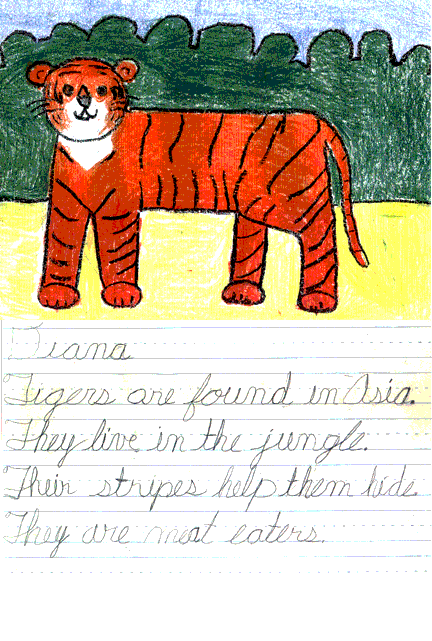 Diana
Tigers are found in Asia.
They live in the jungle.
Their stripes help them hide.
They are meat eaters.